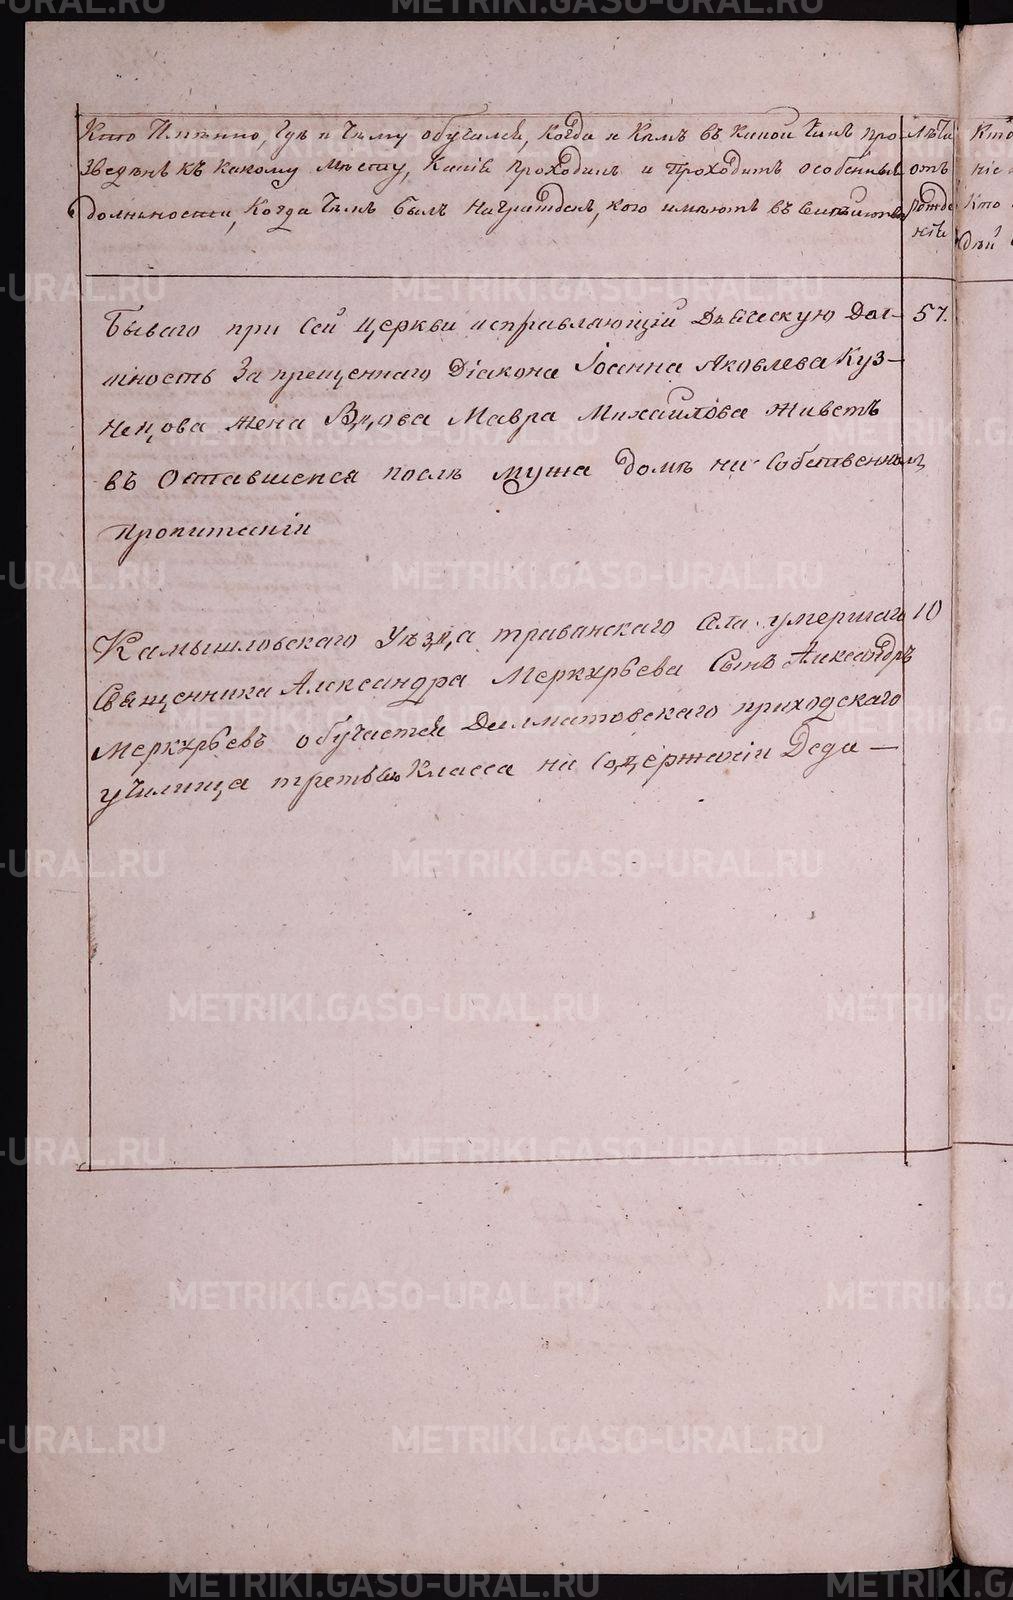 Кто Имянно, Гдѣ и Чему обучился, Когда и Кемъ въ Какой Чинъ про
Лѣта
Кто
зведенъ къ какому мѣсту, Какія проходилъ и проходитъ особенныя
отъ
ніе
должности, Когда Чемъ былъ Награжденъ, кого имѣютъ въ Семѣйстве
рожде
Кто
нія
дѣй
Бываго при сей церкви исправляющій Дьяческую Дол-
57.
жность Запрещеннаго Діакона Іоанна Яковлева Куз-
нецова жена Вдова Мавра Михайлова живетъ
въ Оставшемся послѣ мужа домѣ на собственномъ
пропитаніи
Камышловскаго Уѣзда травянскаго Села умершаго
10
Священника Александра Меркурьева Сынъ Александръ
Меркурьевъ обучается Далматовскаго приходскаго
училища третьяго Класса на Содержаніи Деда —
METRIKI.GASO-URAL.RU